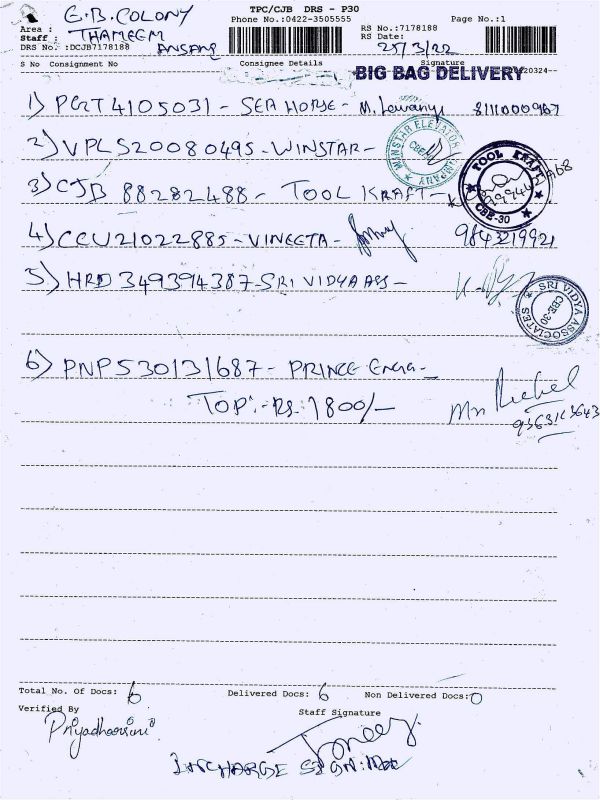 TPC/CJB DRS - P30
G.B. COLONY
Phone No.:0422-3505555
Page No.:1
Area :
RS No.:7178188
Staff : THAMEEM ANSARI
RS Date: 25/3/22
DRS No. :DCJB7178188
S No Consignment No
Consignee Details
Signature
BIG BAG DELIVERY
1) PGT4105031 - SEA HORSE - M.
2) VPL520080495 - WINSTAR -
WINSTAR ELEVATOR COMPANY
CBE
3) CJB 88282488 - TOOL KRAFT -
TOOL KRAFT
CBE-30
4) CCU21022885 - VINEETA -
9843219921
5) HRD349394387 - SRI VIDYA ASS -
SRI VIDYA ASSOCIATES
CBE-30
6) PNP530131687 - PRINCE Engg -
TOP - RS. 1800/-
Total No. Of Docs: 6
Delivered Docs: 6
Non Delivered Docs: 0
Verified By
Staff Signature
Priyadharsini
INCHARGE SIGN: